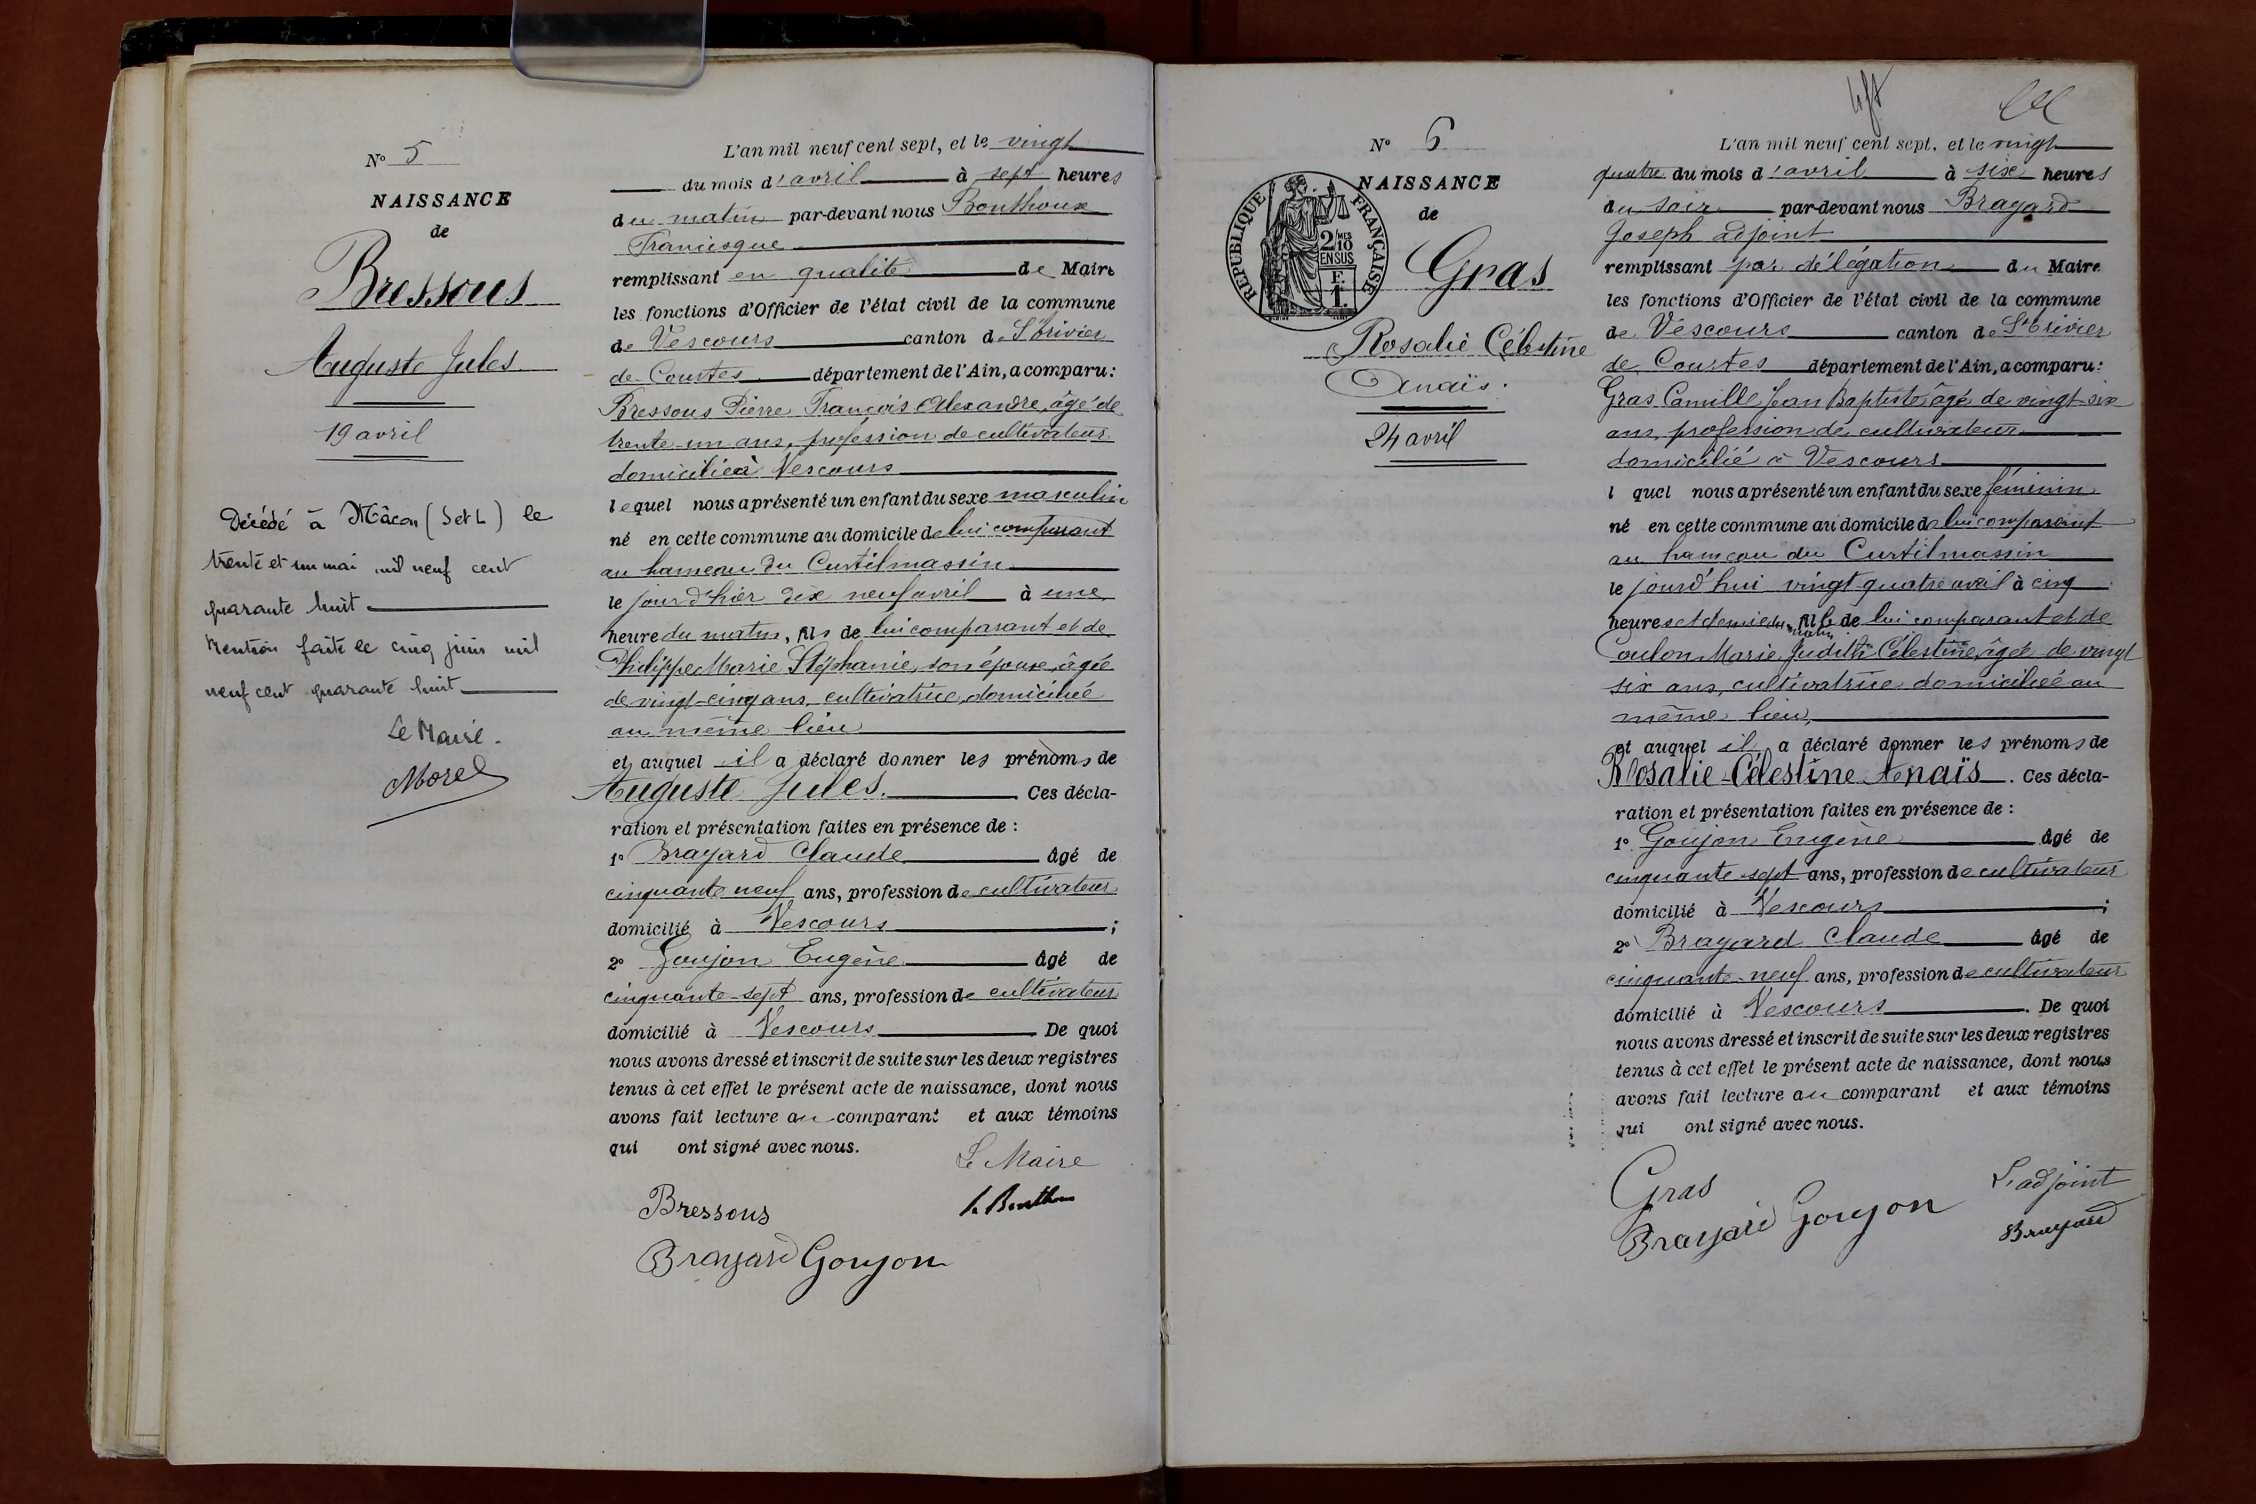 N° 5
NAISSANCE
de
Bressous
Auguste Jules
19 avril
Décédé à Mâcon (S et L) le
trente et un mai mil neuf cent
quarante huit
Mention faite le cinq juin mil
neuf cent quarante huit
Le Maire.
Morel
L'an mil neuf cent sept, et le vingt
du mois d'avril à sept heures
du matin par-devant nous Bonthoux
Francisque
remplissant en qualité de Maire
les fonctions d'Officier de l'état civil de la commune
de Vescours canton de St Trivier
de Courtes département de l'Ain, a comparu:
Bressous Pierre François Alexandre, âgé de
trente-un ans, profession de cultivateur
domicilié à Vescours
lequel nous a présenté un enfant du sexe masculin
né en cette commune au domicile de lui comparant
au hameau du Curtilmassin
le jour d'hier dix neuf avril à une
heure du matin, fils de lui comparant et de
Philippe Marie Stéphanie, son épouse, âgée
de vingt-cinq ans, cultivatrice, domiciliée
au même lieu
et auquel il a déclaré donner les prénoms de
Auguste Jules. Ces décla-
ration et présentation faites en présence de :
1° Brayard Claude âgé de
cinquante neuf ans, profession de cultivateur
domicilié à Vescours ;
2° Goujon Eugène âgé de
cinquante-sept ans, profession de cultivateur
domicilié à Vescours De quoi
nous avons dressé et inscrit de suite sur les deux registres
tenus à cet effet le présent acte de naissance, dont nous
avons fait lecture au comparant et aux témoins
qui ont signé avec nous.
Le Maire
Bressous
Brayard Goujon
N° 6
NAISSANCE
de
REPUBLIQUE FRANÇAISE
2/MES 10
EN SUS
F.
1.
Gras
Rosalie Célestine
Anaïs.
24 avril
L'an mil neuf cent sept, et le vingt
quatre du mois d'avril à six heures
du soir par-devant nous Brayard
Joseph adjoint
remplissant par délégation du Maire
les fonctions d'Officier de l'état civil de la commune
de Vescours canton de St Trivier
de Courtes département de l'Ain, a comparu:
Gras Camille Jean Baptiste âgé de vingt-six
ans, profession de cultivateur
domicilié à Vescours
l quel nous a présenté un enfant du sexe féminin
né en cette commune au domicile de lui comparant
au hameau du Curtilmassin
le jourd'hui vingt quatre avril à cinq
heures et demie du matin, fille de lui comparant et de
Coulon Marie Judith Célestine, âgée de vingt
six ans, cultivatrice domiciliée au
même lieu,
et auquel il a déclaré donner les prénoms de
Rosalie-Célestine Anaïs. Ces décla-
ration et présentation faites en présence de :
1° Goujon Eugène âgé de
cinquante sept ans, profession de cultivateur
domicilié à Vescours ;
2° Brayard Claude âgé de
cinquante-neuf ans, profession de cultivateur
domicilié à Vescours. De quoi
nous avons dressé et inscrit de suite sur les deux registres
tenus à cet effet le présent acte de naissance, dont nous
avons fait lecture au comparant et aux témoins
qui ont signé avec nous.
Gras L'adjoint
Brayard Goujon Brayard